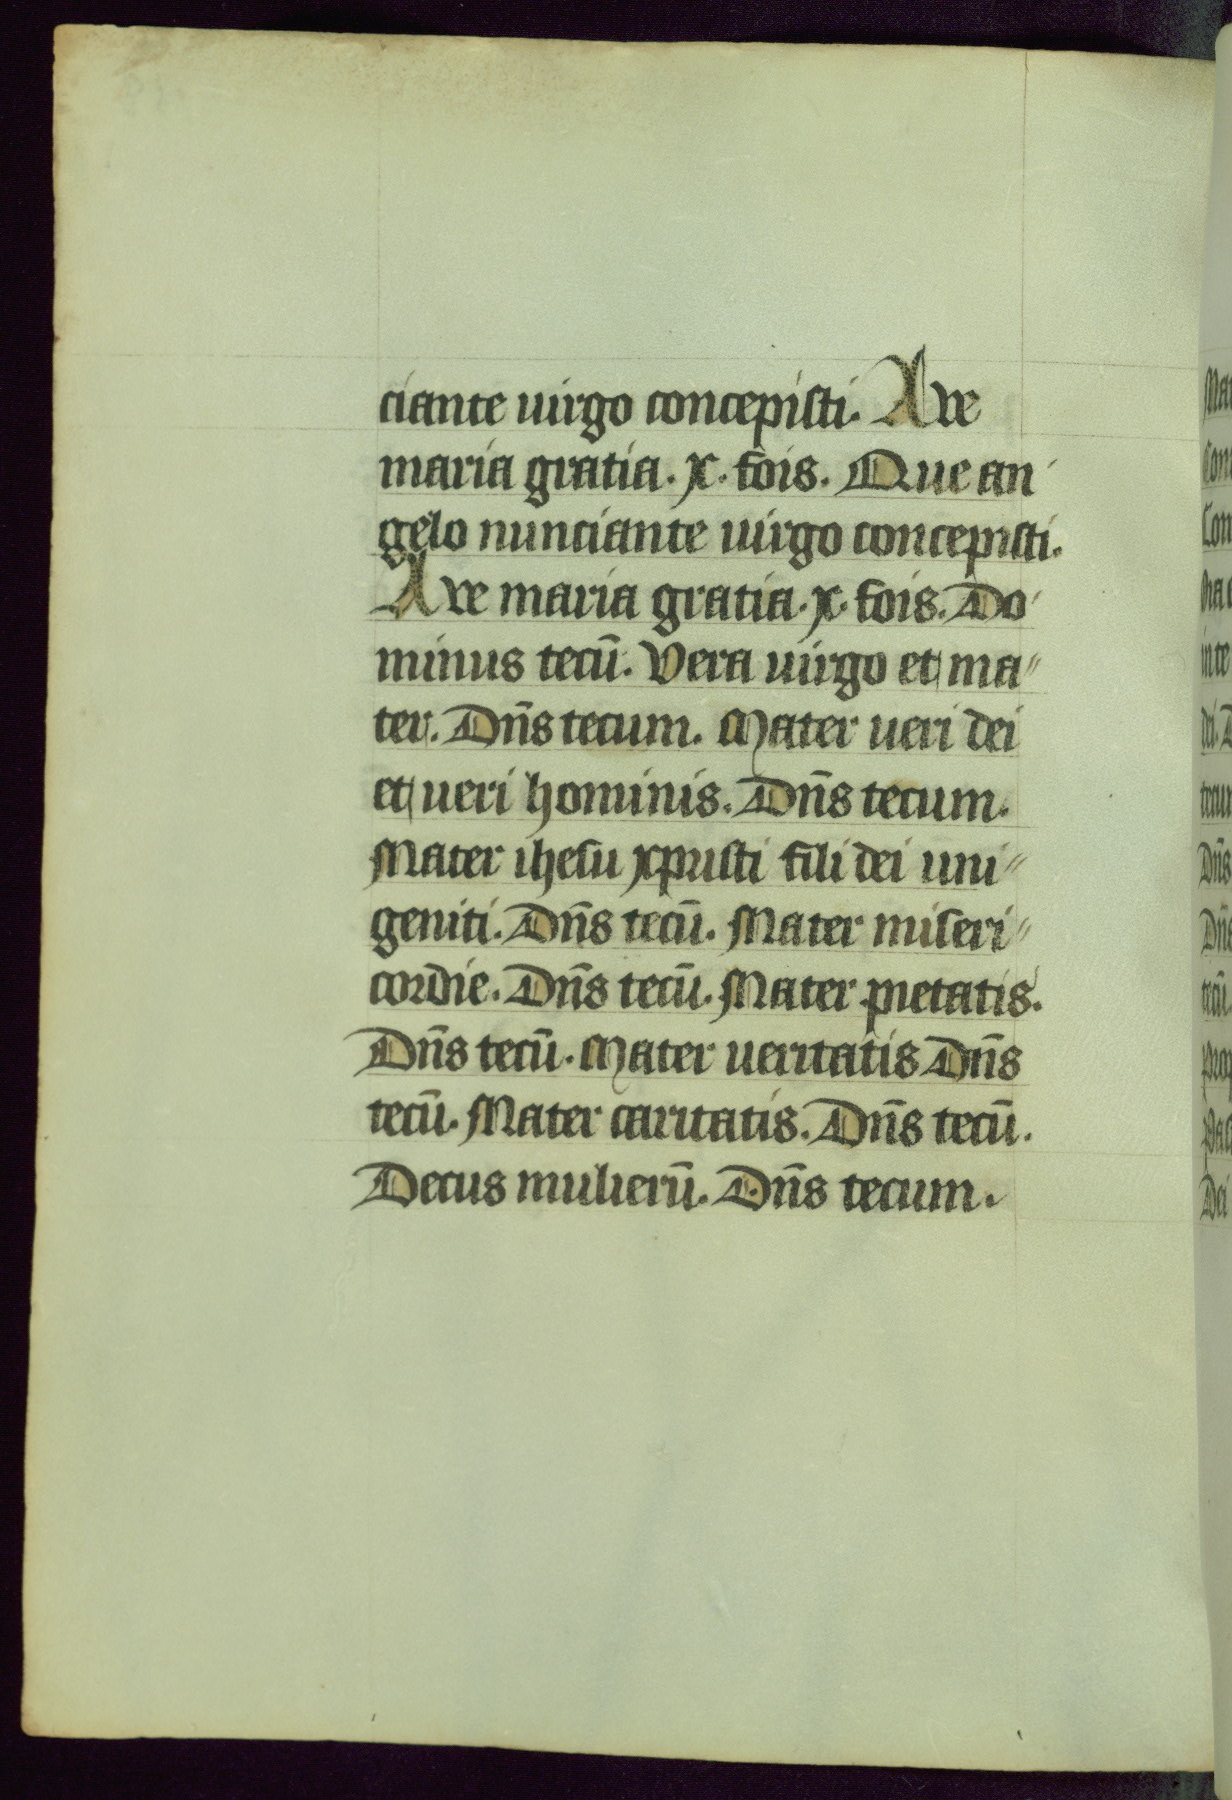 ciante uirgo concepisti. Aue
maria gratia. x. fois. Que an
gelo nunciante uirgo concepisti.
Aue maria gratia. x. fois. Do
minus tecū. Vera uirgo et ma"
ter. Dn̄s tecum. Mater ueri dei
et ueri hominis. Dn̄s tecum.
Mater ihesu xpristi fili dei uni"
geniti. Dn̄s tecū. Mater miseri"
cordie. Dn̄s tecū. Mater pietatis.
Dn̄s tecū. Mater ueritatis Dn̄s
tecū. Mater caritatis. Dn̄s tecū.
Decus mulierū. Dn̄s tecum.